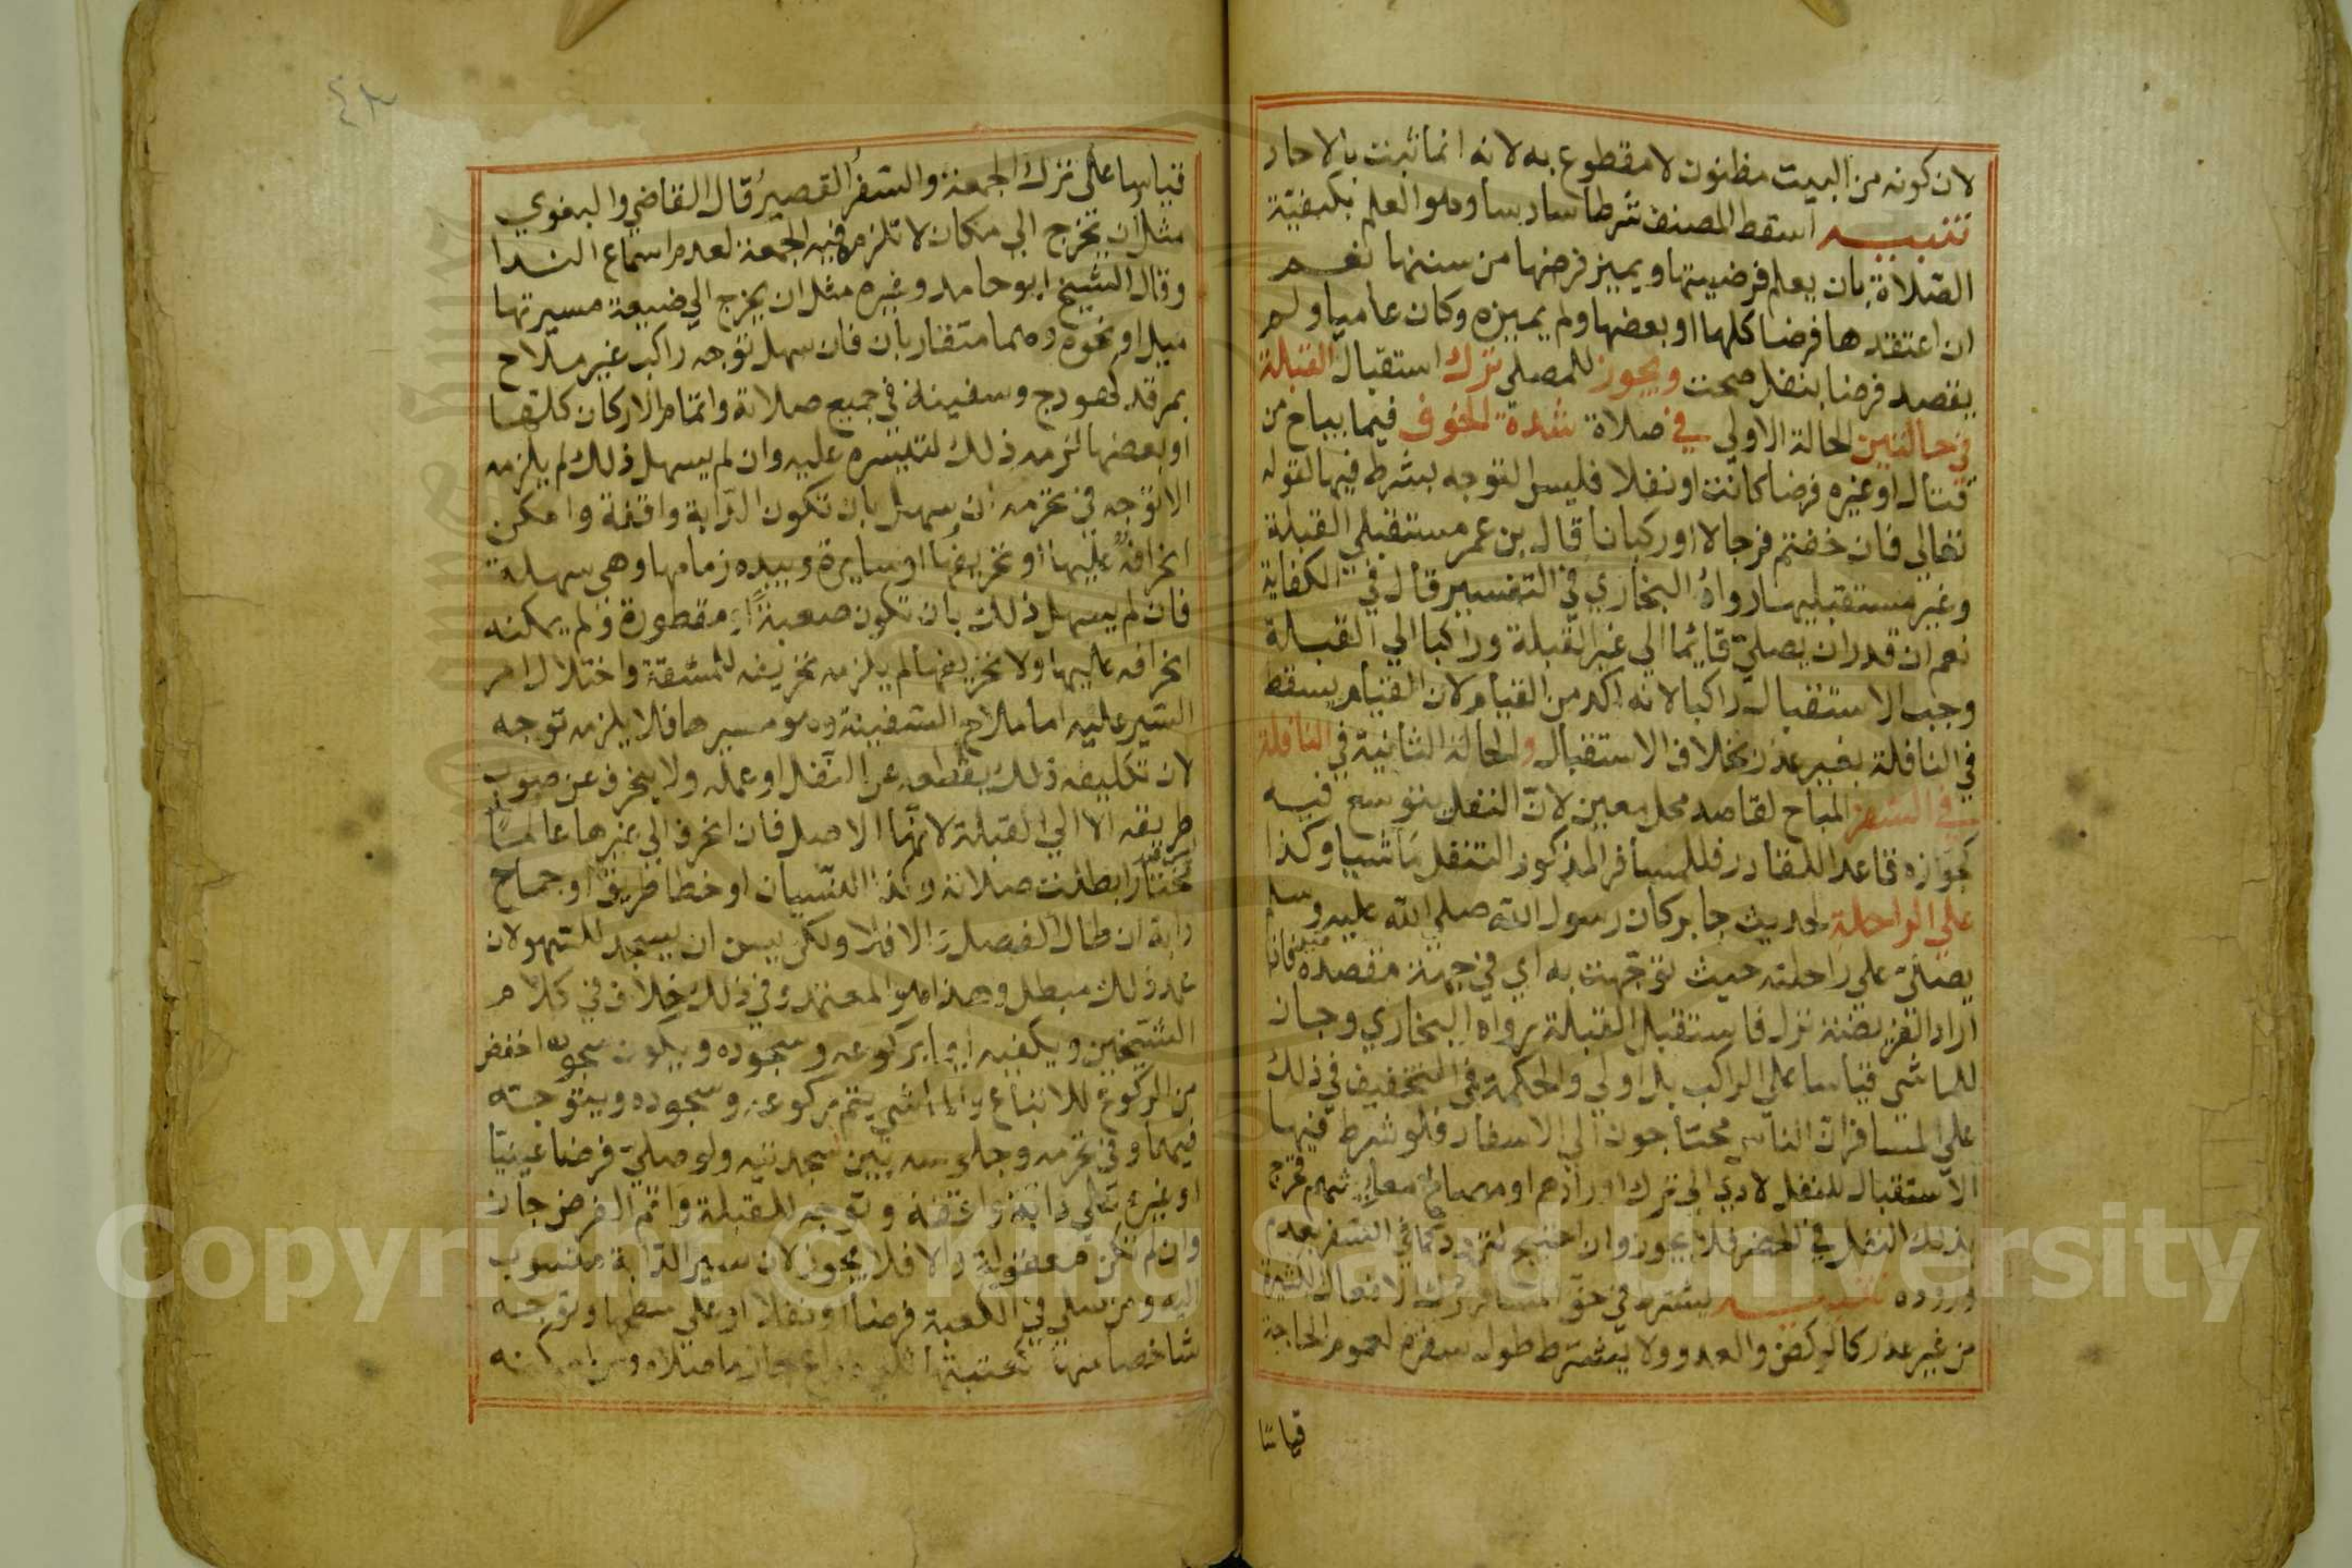 لان كونه من البيت مظنون لا مقطوع به لانه انما ثبت بالاحاد
تنبيه اسقط المصنف شرطا سادسا وهو العلم بكيفية
الصلاة بان يعلم فرضيتها ويميز فرضها من سننها نعم
ان اعتقدها فرضا كلها او بعضها ولم يميزه وكان عاميا ولم
يقصد فرضا بنفل صحت ويجوز للمصلي ترك استقبال القبلة
في حالتين الحالة الاولي في صلاة شدة الخوف فيما يباح من
قتال او غيره فرضا كانت او نفلا فليس التوجه بشرط فيها لقوله
تعالي فان خفتم فرجالا او ركبانا قال بن عمر مستقبلي القبلة
وغير مستقبليها رواه البخاري في التفسير قال في الكفاية
نعم ان قدر ان يصلي قايما الي غير القبلة وراكبا الي القبلة
وجب الاستقبال راكبا لانه اكد من القيام لان القيام يسقط
في النافلة بغير عذر بخلاف الاستقبال والحالة الثانية في النافلة
في السفر المباح لقاصد محل معين لان النفل يتوسع فيه
كجوازه قاعدا للقادر فللمسافر المذكور التنفل ماشيا وكذا
علي الراحلة لحديث جابر كان رسول الله صلي الله عليه وسلم
يصلي علي راحلته حيث توجهت به اي في جهة مقصده فاذا
اراد الفريضة نزل فاستقبل القبلة رواه البخاري وجاز
للماشي قياسا علي الراكب بل اولي والحكمة في التخفيف في ذلك
علي المسافر ان الناس محتاجون الي الاسفار فلو شرط فيها
الاستقبال للنفل لادي الي ترك اورادهم او مصالح معايشهم فخرج
بذلك النفل في الحضر فلا يجوز وان احتيج لتردد كما في السفر لعدم
وروده تنبيه يشترط في حق المسافر ترك الافعال الكثيرة
من غير عذر كالركض والعدو ولا يشترط طول سفره لعموم الحاجة
قياسا
٤٨
قياسا علي ترك الجمعة والسفر القصير قال القاضي والبغوي
مثل ان يخرج الي مكان لا تلزمه فيه الجمعة لعدم اسماع الندا
وقال الشيخ ابو حامد وغيره مثل ان يخرج الي ضيعة مسيرتها
ميل او نحوه وهما متقاربان فان سهل توجه راكب غير ملاح
بمرقد كهودج وسفينة في جميع صلاته واتمام الاركان كلها
او بعضها لزمه ذلك لتيسره عليه وان لم يسهل ذلك لم يلزمه
الا توجه في تحرمه ان سهل بان تكون الدابة واقفة وامكن
انحرافه عليها او تحريفها او سايرة وبيده زمامها وهي سهلة
فان لم يسهل ذلك بان تكون صعبة او مقطورة ولم يمكنه
انحرافه عليها ولا تحريفها لم يلزمه تحريفه للمشقة واختلال امر
السير عليه اما ملاح السفينة وهو مسيرها فلا يلزمه توجه
لان تكليفه ذلك يقطعه عن النفل او عمله ولا ينحرف عن صوب
طريقه الا الي القبلة لانها الاصل فان انحرف الي غيرها عالما
مختارا بطلت صلاته وكذا النسيان او خطا طريق او جماح
دابة ان طال الفصل والا فلا ولكن يسن ان يسجد للسهو لان
عمد ذلك مبطل وهذا هو المعتمد وفي ذلك خلاف في كلام
الشيخين ويكفيه ايما بركوعه وسجوده ويكون سجوده اخفض
من الركوع للاتباع والماشي يتم ركوعه وسجوده ويتوجه
فيهما وفي تحرمه وجلوسه بين سجدتيه ولو صلي فرضا عينيا
او غيره علي دابة واقفة وتوجه للقبلة واتم الفرض جاز
وان لم تكن معقولة والا فلا يجوز لان سير الدابة منسوب
اليه ومن صلي في الكعبة فرضا او نفلا او علي سطحها وتوجه
شاخصا منها كعتبتها جاز ما صلاه ومن امكنه
Copyright © King Saud University